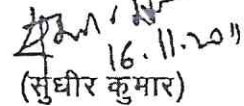 16.11.2011
(सुधीर कुमार)